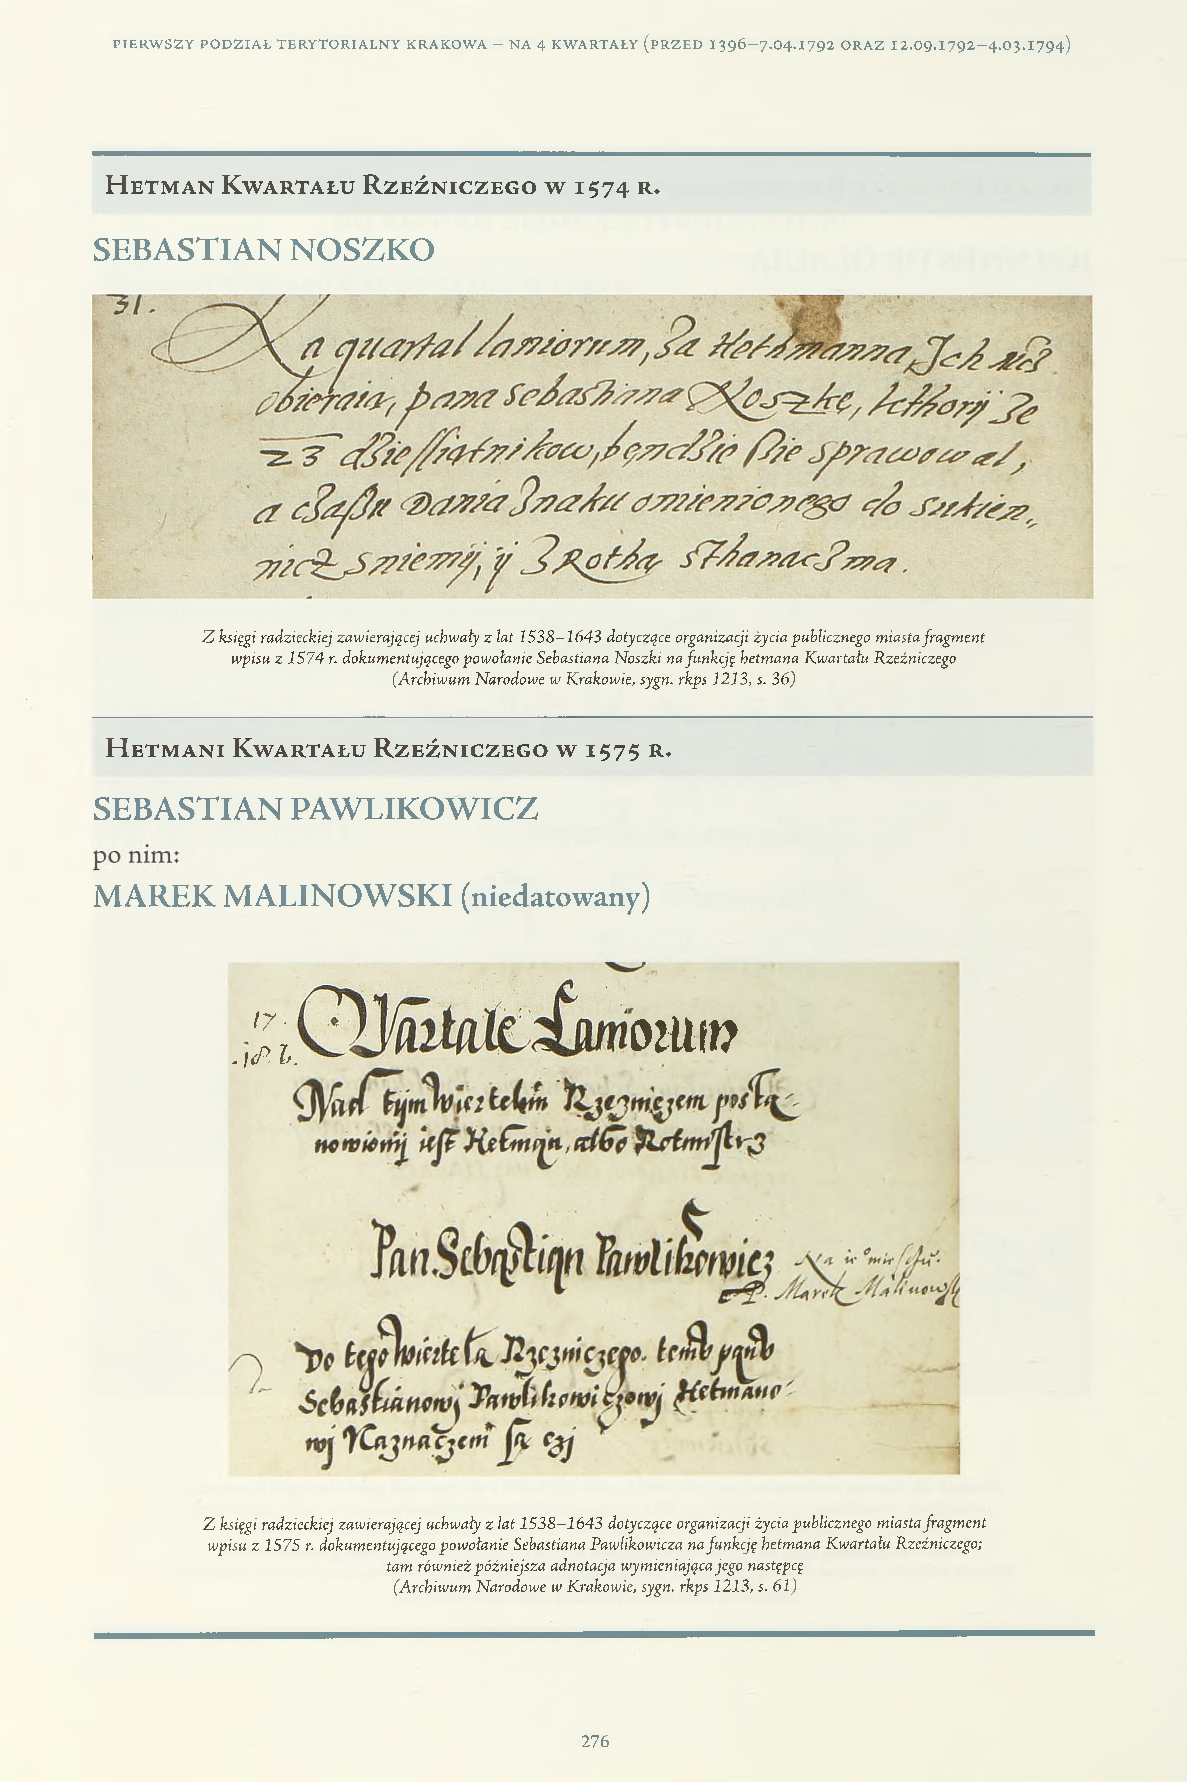 PIERWSZY PODZIAŁ TERYTORIALNY KRAKOWA – NA 4 KWARTAŁY (PRZED 1396–7.04.1792 ORAZ 12.09.1792–4.03.1794)
HETMAN KWARTAŁU RZEŹNICZEGO W 1574 R.
SEBASTIAN NOSZKO
31.
Na quartal laniorum, za Hethmanna Jch
obieraia, pana Sebasthiana Noszkę, kthorÿ ze
23 dziessiątnikow, będzie sie sprawowal,
a czassu dania znaku omienionego do sukien„
nicz s niemÿ, ÿ z Rothą sthanacz ma.
Z księgi radzieckiej zawierającej uchwały z lat 1538–1643 dotyczące organizacji życia publicznego miasta fragment
wpisu z 1574 r. dokumentującego powołanie Sebastiana Noszki na funkcję hetmana Kwartału Rzeźniczego
(Archiwum Narodowe w Krakowie, sygn. rkps 1213, s. 36)
HETMANI KWARTAŁU RZEŹNICZEGO W 1575 R.
SEBASTIAN PAWLIKOWICZ
po nim:
MAREK MALINOWSKI (niedatowany)
17.
Qvartale Laniorum
Nad tÿm wiertelem Rzezniczem posta-
nowionÿ iest Hetman, albo Rotmistrz
Pan Sebastian Pawlikowicz
Na ie° mieisczu.
P. Marek Malinowsk
Do tego wiertela Rzezniczego. temv panv
Sebastianowj Pawlikowiczowj Hetmano-
wj Naznaczeni są czj
Z księgi radzieckiej zawierającej uchwały z lat 1538–1643 dotyczące organizacji życia publicznego miasta fragment
wpisu z 1575 r. dokumentującego powołanie Sebastiana Pawlikowicza na funkcję hetmana Kwartału Rzeźniczego;
tam również późniejsza adnotacja wymieniająca jego następcę
(Archiwum Narodowe w Krakowie, sygn. rkps 1213, s. 61)
276